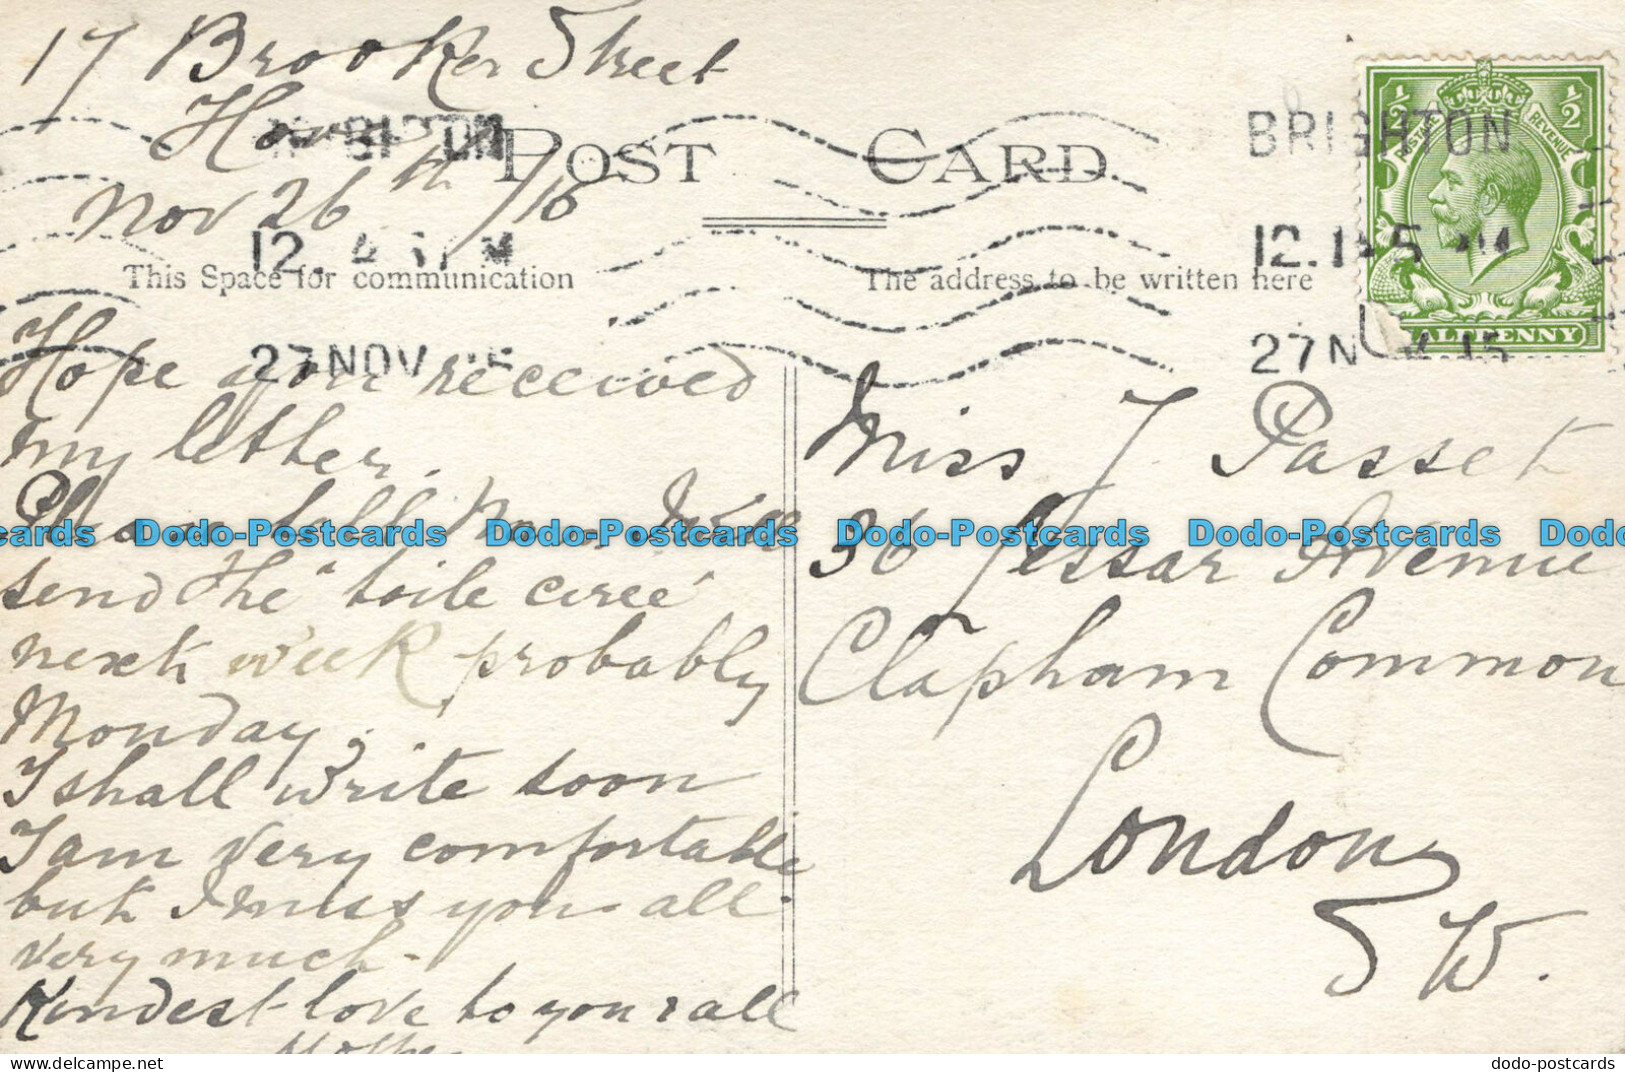 17 Brooker Street
Hove
Nov 26th /15
POST CARD
BRIGHTON
12.15 AM
27 NOV 15
This Space for communication
The address to be written here
½ ½
POSTAGE REVENUE
HALFPENNY
Hope you received
my letter.
Please tell
send the "toile ciree"
next week probably
Monday.
I shall write soon
I am very comfortable
but I miss you all
very much.
Kindest love to you & all
Mother
Miss J Passet
36 Avenue
Clapham Common
London
SW.
Dodo-Postcards Dodo-Postcards Dodo-Postcards Dodo-Postcards
delcampe.net
dodo-postcards